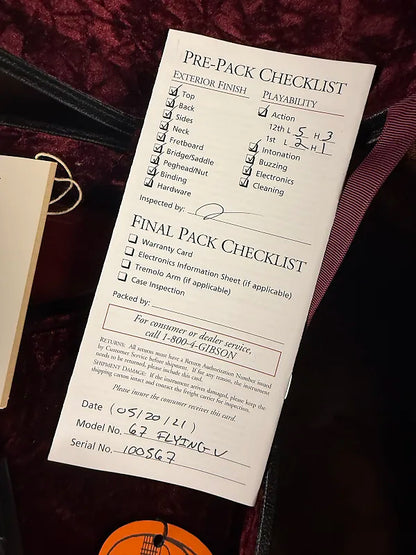 PRE-PACK CHECKLIST
EXTERIOR FINISH
Top
Back
Sides
Neck
Fretboard
Bridge/Saddle
Peghead/Nut
Binding
Hardware
PLAYABILITY
Action
12th L 5 H 3
1st L 2 H 1
Intonation
Buzzing
Electronics
Cleaning
Inspected by:
FINAL PACK CHECKLIST
Warranty Card
Electronics Information Sheet (if applicable)
Tremolo Arm (if applicable)
Case Inspection
Packed by:
For consumer or dealer service,
call 1-800-4-GIBSON
RETURNS: All returns must have a Return Authorization Number issued
by Customer Service before shipment. If for any reason, the instrument
needs to be returned, please include this card.
SHIPMENT DAMAGE: If the instrument arrives damaged, please keep the
shipping carton intact and contact the freight carrier for inspection.
Please insure the consumer receives this card.
Date (05/20/21)
Model No. 67 FLYING-V
Serial No. 100567